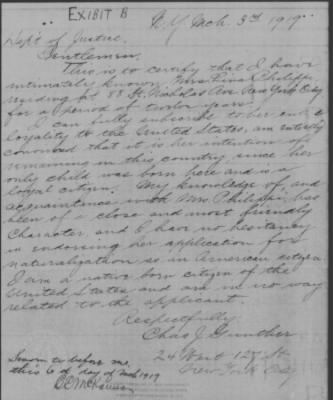 EXHIBIT B
N.Y. Mch. 3rd 1919
Dept of Justice.
Gentlemen:
This is to certify that I have
intimately known Mrs. Lina Philippi
residing at 88 St. Nicholas Ave New York City
for a period of twelve years.
I can fully subscribe to her entire
loyality to the United States, am entirely
convinced that it is her intention of
remaining in this country, since her
only child was born here and is a
loyal citizen. My knowledge of, and
acquaintance with Mrs. Philippi, has
been of a close and most friendly
Character, and I have no hesitancy
in endorsing her application for
naturalization as an American citizen
I am a native born citizen of the
United States and am in no way
related to the applicant.
Respectfully
Chas J. Gunther
24 West 127 St
New York City
Sworn to before me
this 6 of day of Mch 1919